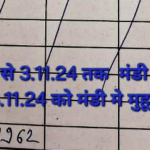 से 3.11.24 तक मंडी
.11.24 को मंडी मे मुहू
2962